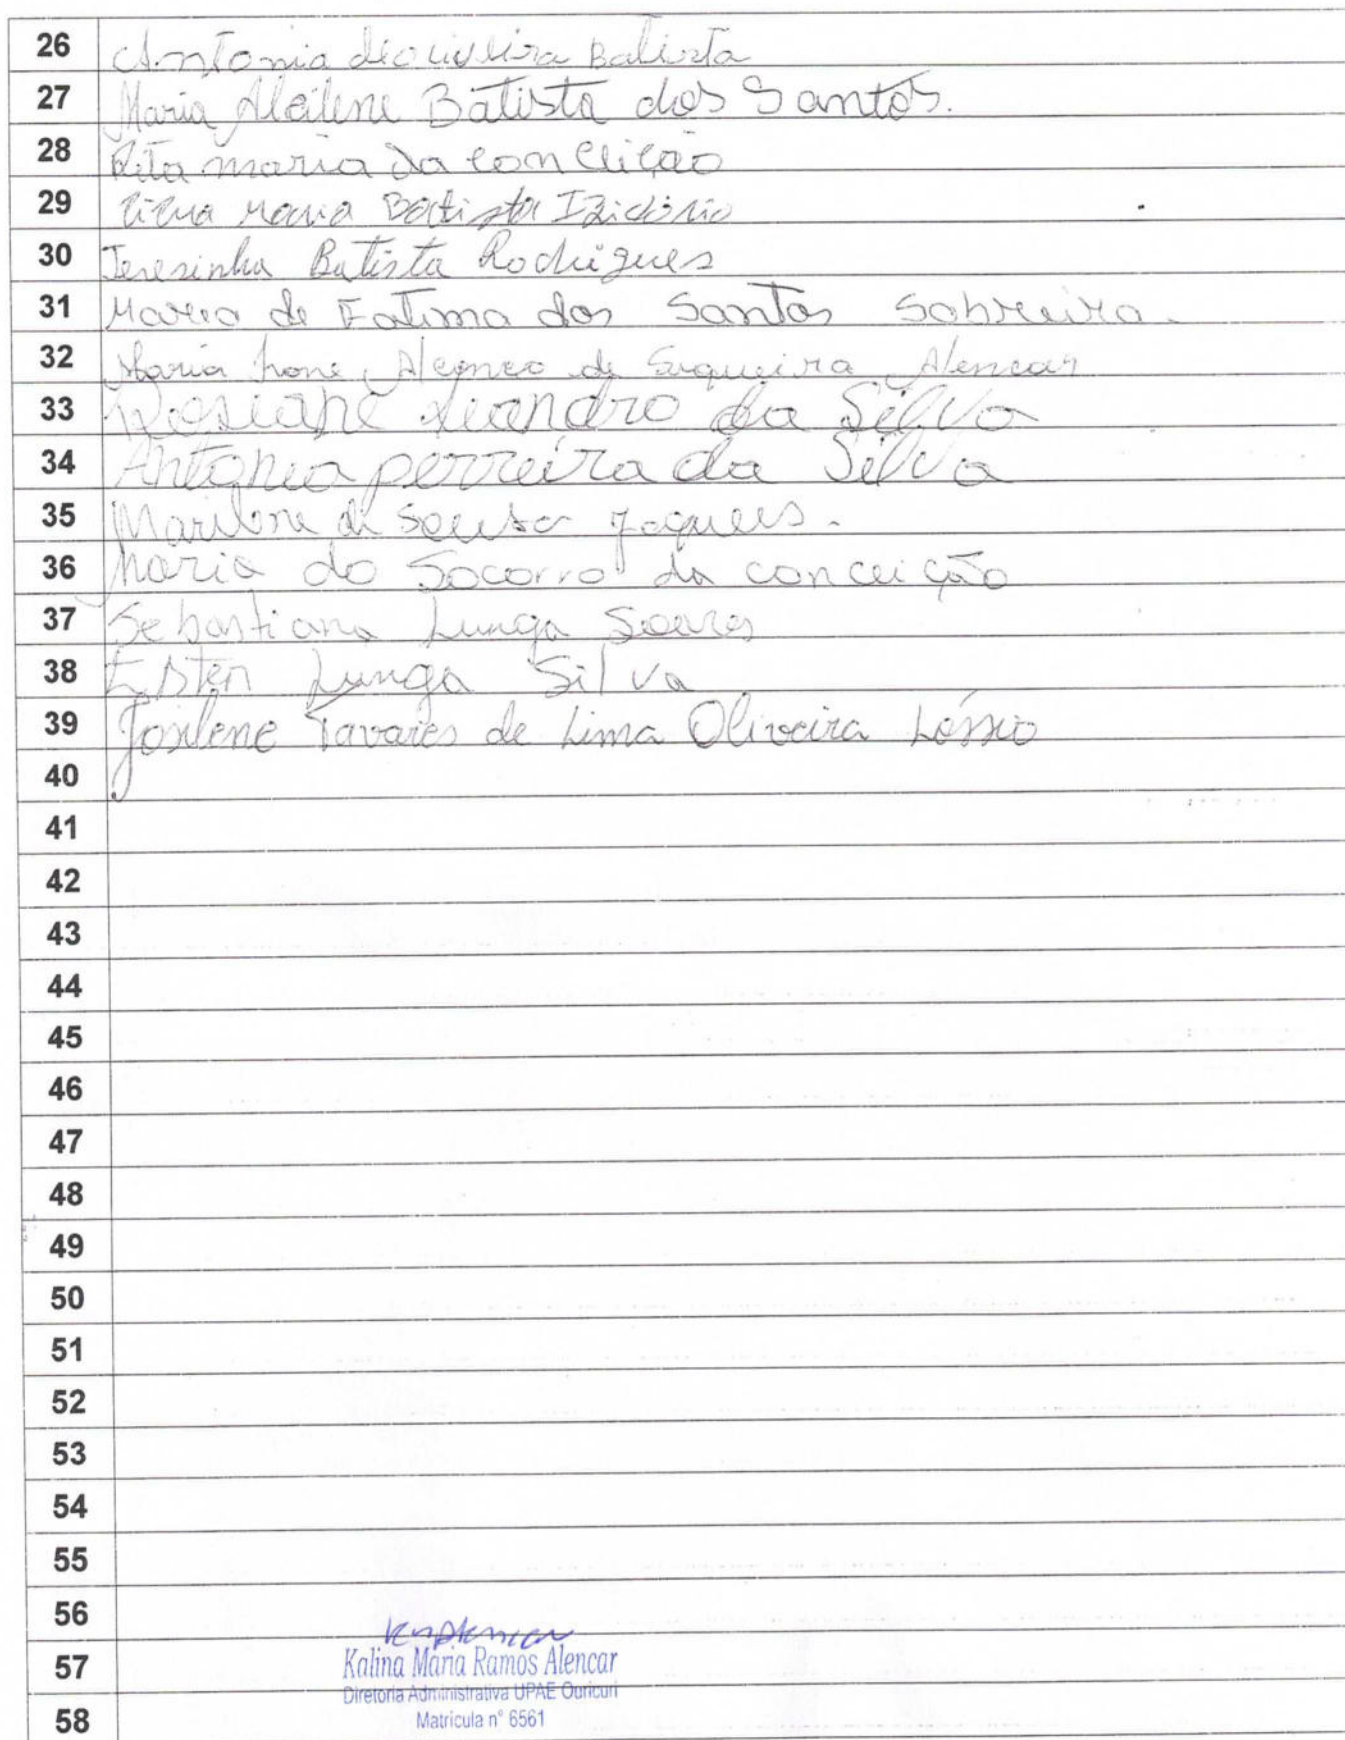 26 Antonia de oliveira Batista
27 Maria Alcilene Batista dos Santos.
28 Rita maria da Conceição
29 maria Batista Izidório
30 Teresinha Batista Rodrigues
31 Maria de Fatima dos Santos Sobreira.
32 Maria de Siqueira Alencar
33 Rosiane Leandro da Silva
34 Antonia perreira da Silva
35 Marilene de Sousa Jaques.
36 Maria do Socorro da conceição
37 Sebastiana Lunga Soares
38 Ester Lunga Silva
39 Josilene Tavares de Lima Oliveira Lóssio
40
41
42
43
44
45
46
47
48
49
50
51
52
53
54
55
56
57 Kalina Maria Ramos Alencar
Diretoria Administrativa UPAE Ouricuri
58 Matricula n° 6561